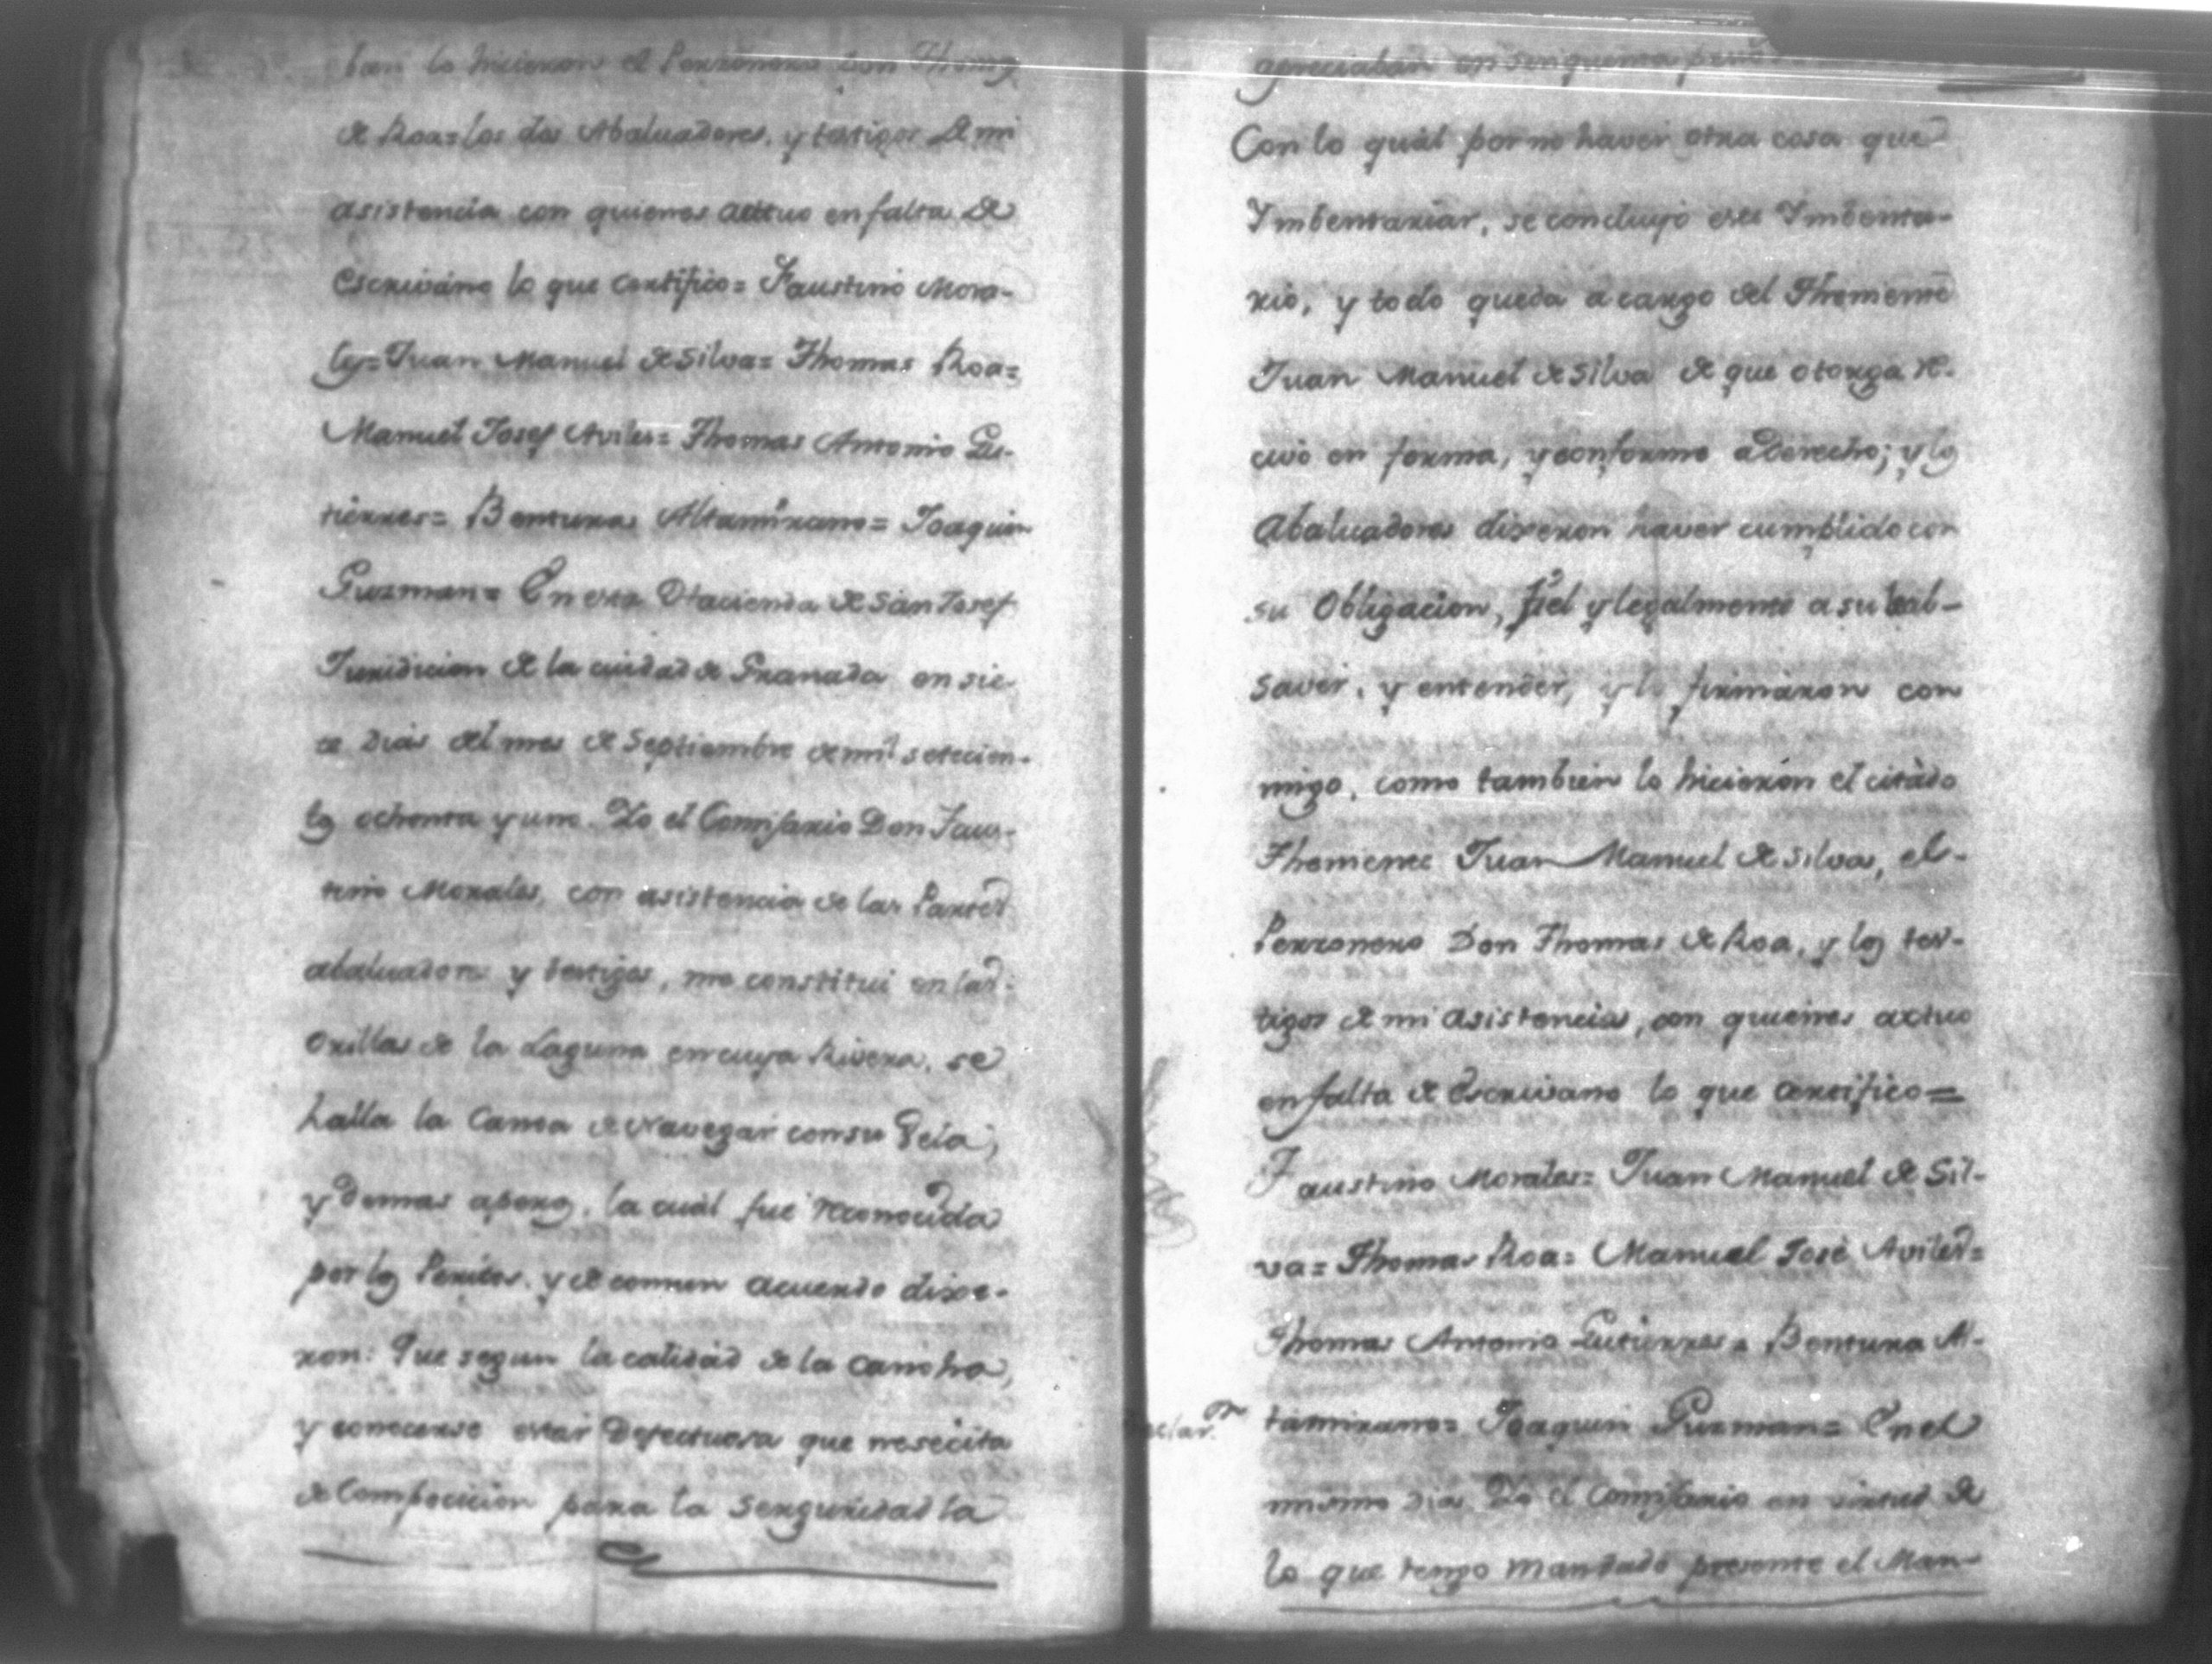 ban lo hicieron el Perzonero Don Thomas
de Roa= los dos Abaluadores, y testigos de mi
asistencia con quienes actuo en falta de
Escrivano lo que certifico= Faustino Mora-
les= Juan Manuel de Silva= Thomas Roa=
Manuel Josef Aviles= Thomas Antonio Gu-
tierres= Bentura Altamirano= Joaquin
Guzman= En esta Hacienda de San Josef
Juridicion de la ciudad de Granada en sie-
te dias del mes de Septiembre de mil setecien-
tos ochenta y uno. Yo el Comisario Don Faus-
tino Morales, con asistencia de las Partes
abaluadores y testigos, me constitui en las
orillas de la Laguna en cuya Rivera, se
halla la Canoa de navegar con su Bela,
y demas aperos, la cuál fue reconocida
por los Peritos, y de comun acuerdo dixe-
ron: Que segun la calidad de la cancha,
y conocerse estar defectuosa que nesecita
de Composicion para la senguridad la
apreciaban en sinquenta pesos
Con lo quál por no haver otra cosa que
Imbentariar, se concluyó este Imbenta-
rio, y todo queda a cargo del Theniente
Juan Manuel de Silva de que otorga re-
civo en forma, y conforme a Derecho; y los
Abaluadores dixeron haver cumplido con
su Obligacion, fiel y legalmente a su leal
saver, y entender, y lo firmáron con
migo, como tambien lo hicierón el citádo
Theniente Juan Manuel de Silva, el-
Perzonero Don Thomas de Roa, y los tes-
tigos de mi asistencia, con quienes actuo
en falta de Escrivano lo que certifico=
Faustino Morales= Juan Manuel de Sil-
va= Thomas Roa= Manuel José Aviles=
Thomas Antonio Gutierres= Bentura Al-
tamirano= Joaquin Guzman= En el
mismo dia Yo el Comisario en virtud de
lo que tengo mandado presente el Man-